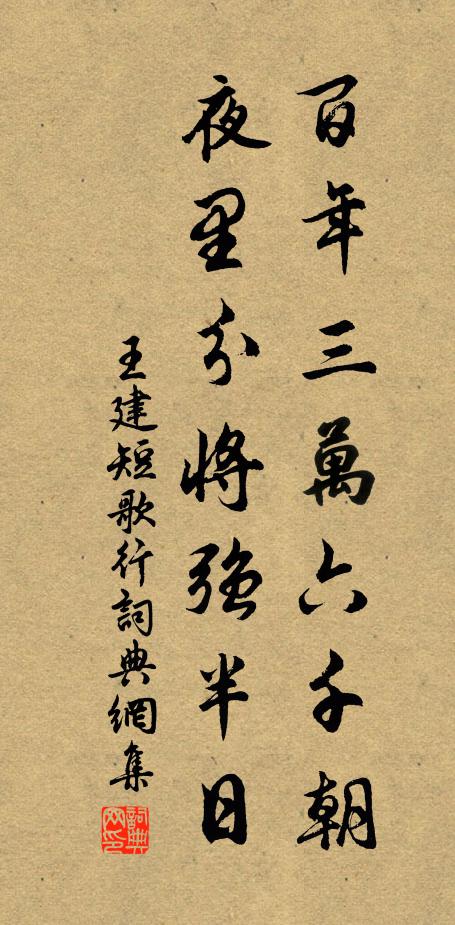 百年三萬六千朝
夜里分將强半日
王建短歌行詞典網集
詞典網印